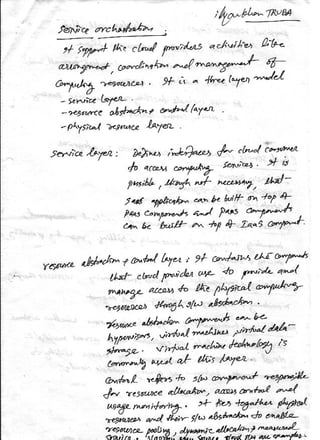 TRUBA
Service orchestration
It support the cloud providers activities like
arrangement, coordination and management of
Computing resources. It is a three layer model
- service layer.
- resource abstraction & control layer
- physical resource layer.
Service layer: Defines interfaces for cloud consumer
to access computing services. It is
possible, though not necessary, that
SaaS application can be built on top of
PaaS Components and PaaS components
can be built on top of IaaS component.
resource abstraction & control layer: It contains the components
that cloud provider use to provide and
manage access to the physical computing
resources through s/w abstraction.
resource abstraction components can be
hypervisors, virtual machines, virtual data
storage. Virtual machine technology is
commonly used at this layer
Control refers to s/w component responsible
for resource allocation, access control and
usage monitoring. It ties together physical
resources and their s/w abstraction to enable
resource pooling, dynamic allocation & measured
service. open source cloud s/w are examples